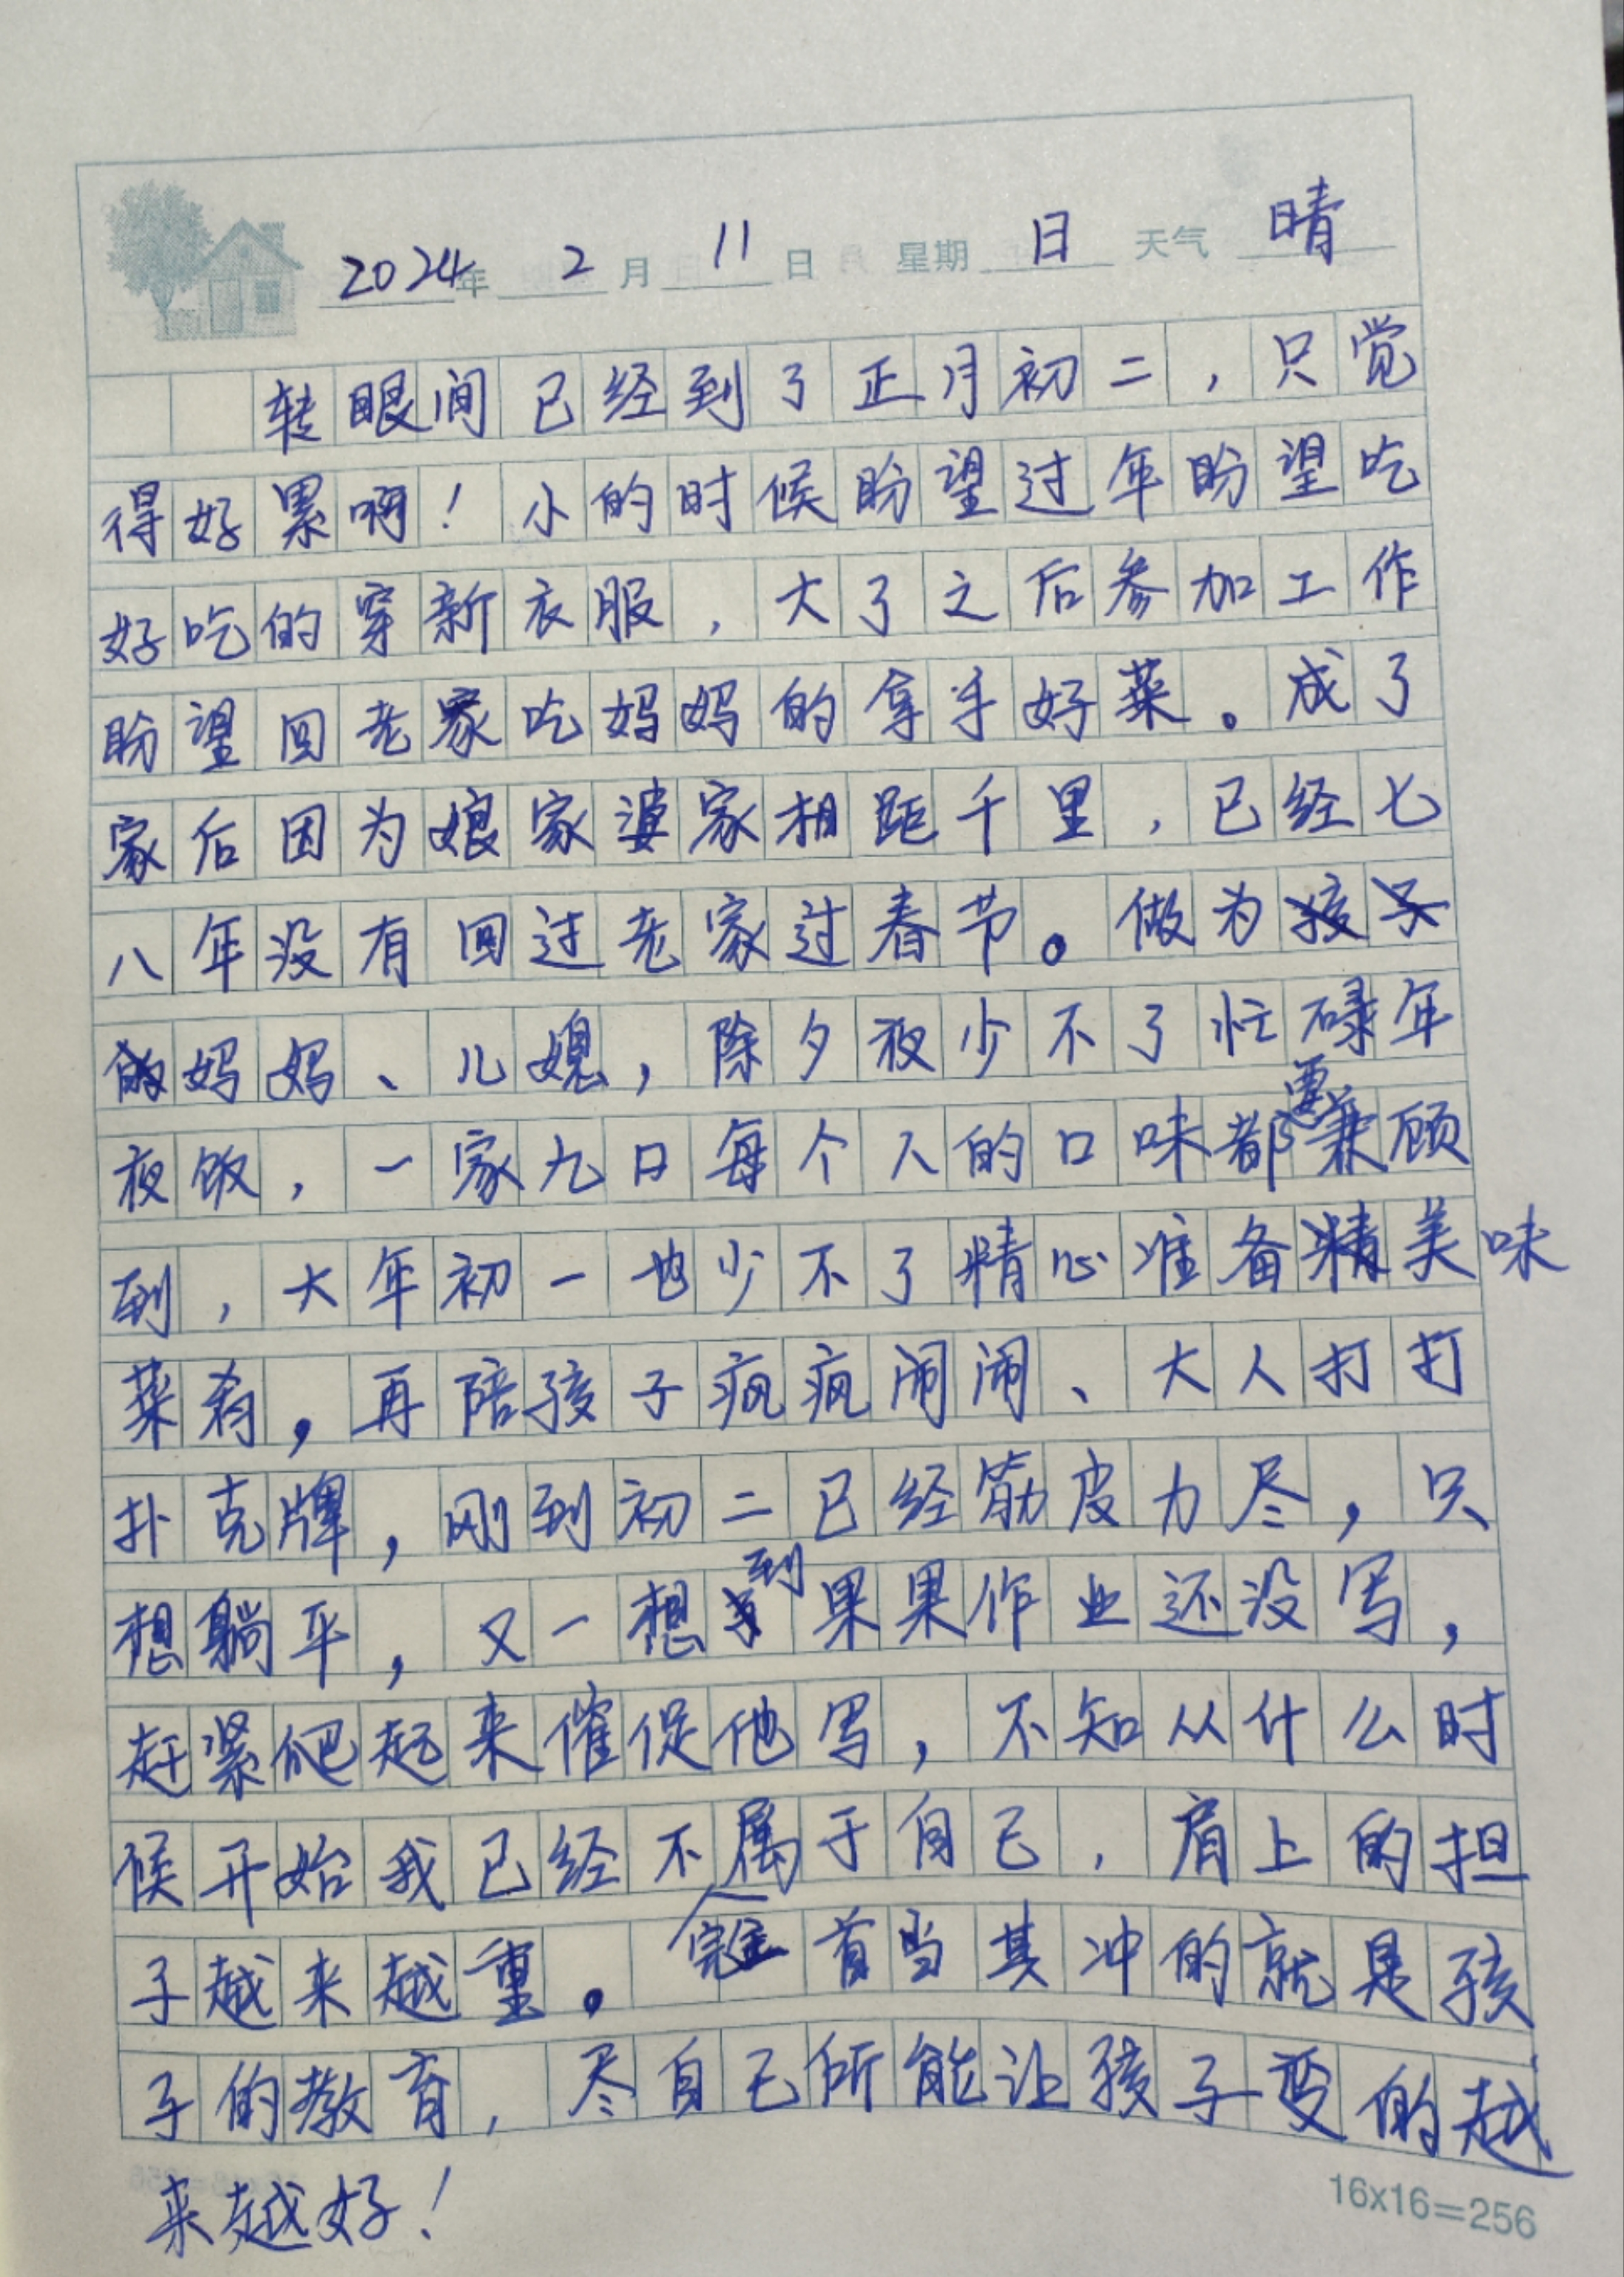 2024年 2 月 11 日 星期 日 天气 晴
转眼间已经到了正月初二，只觉
得好累啊！小的时候盼望过年盼望吃
好吃的穿新衣服，大了之后参加工作
盼望回老家吃妈妈的拿手好菜。成了
家后因为娘家婆家相距千里，已经七
八年没有回过老家过春节。做为
妈妈、儿媳，除夕夜少不了忙碌年
夜饭，一家九口每个人的口味都要兼顾
到，大年初一也少不了精心准备美味
菜肴，再陪孩子疯疯闹闹、大人打打
扑克牌，刚到初二已经筋皮力尽，只
想躺平，又一想到果果作业还没写，
赶紧爬起来催促他写，不知从什么时
候开始我已经不完全属于自己，肩上的担
子越来越重。首当其冲的就是孩
子的教育，尽自己所能让孩子变的越
来越好！
16x16=256